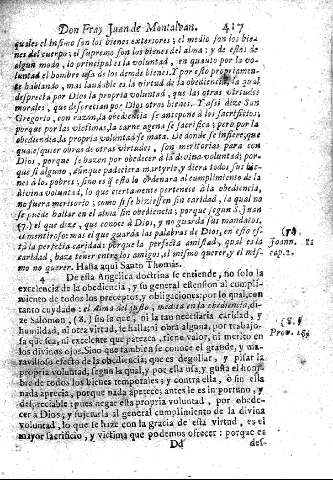 Don Fray Juan de Montalvan. 417
quales el infimo son los bienes exteriores; el medio son los bie-
nes del cuerpo; el supremo son los bienes del alma; y de estas de
algun modo, lo principal es la voluntad, en quanto por la vo-
luntad el hombre usa de los demàs bienes. Y por esto propriamen-
te hablando, mas laudable es la virtud de la obediencia, la qual
desprecia por Dios la propria voluntad, que las otras virtudes
morales, que desprecian por Dios otros bienes. Y assi dize San
Gregorio, con razon, la obediencia se antepone à los sacrificios;
porque por las victimas, la carne agena se sacrifica; pero por la
obediencia, la propria voluntad se mata. De donde se infiere, que
qualesquier obras de otras virtudes, son meritorias para con
Dios, porque se hazen por obedecer à la divina voluntad; por-
que si alguno, aunque padeciera martyrio, y diera todos sus bie-
nes à los pobres; sino es que esto lo ordenara al cumplimiento de la
divina voluntad, lo que ciertamente pertenece à la obediencia,
no fuera meritorio; como si se hiziessen sin caridad, la qual no
se puede hallar en el alma sin obediencia; porque segun S. Juan
(7.) el que dize, que conoce à Dios, y no guarda sus mandatos,
es mentiroso: mas el que guarda las palabras de Dios, en este es-
tà la perfecta caridad: porque la perfecta amistad, qual es la
caridad, haze tener entre los amigos, el mismo querer, y el mis-
mo no querer. Hasta aqui Santo Thomàs.
(7.)
Joann. 1.
cap. 2.
4 De esta Angelica doctrina se entiende, no solo la
excelencia de la obediencia, y su general estension al cumpli-
miento de todos los preceptos, y obligaciones: por lo qual, con
tanto cuydado: el Alma del justo, medita en la obediencia, di-
ze Salomon, (8.) sin la que, ni la tan necessaria caridad, y
humildad, ni otra virtud, se halla; ni obra alguna, por trabajo-
sa que sea, ni excelente que parezca, tiene valor, ni merito en
los divinos ojos. Sino que tambien se conoce el grande, y ma-
ravilloso efecto de la obediencia; que es degollar, y pisar la
propria voluntad; segun la qual, y por ella usa, y gusta el hom-
bre de todos los bienes temporales; y contra ella, ò sin ella
nada aprecia, porque nada apetece; antes le es importuno, y
despreciable; pues negar esta propria voluntad, por obede-
cer à Dios; y sujetarla al general cumplimiento de la divina
voluntad, lo que se haze con la gracia de esta virtud, es el
mayor sacrificio, y victima que podemos ofrecer: porque es
(8.)
Prov. 15.
Dd des-